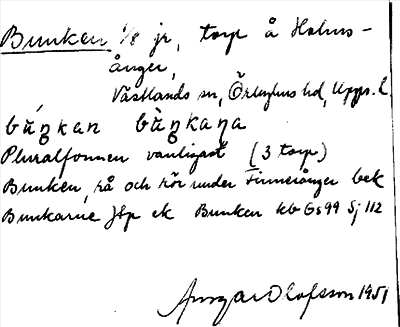 Bunken 1/8 jr, torp å Holms-
ånger,
Västlands sn, Örbyhus hd, Upps. l.
búŋkan bùŋkaṇa
Pluralformen vanligast (3 torp)
Bunken, rå och rör under Finnerånger bek
Bunkarne Jfp ek Bunken kb Gs99 Sj 112
Ansgar Olofsson 1951